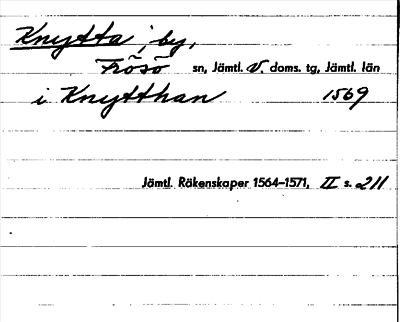 Knytta, by,
Frösö sn, Jämtl. V. doms. tg, Jämtl. län
i Knytthan 1569
Jämtl. Räkenskaper 1564–1571, II s. 211